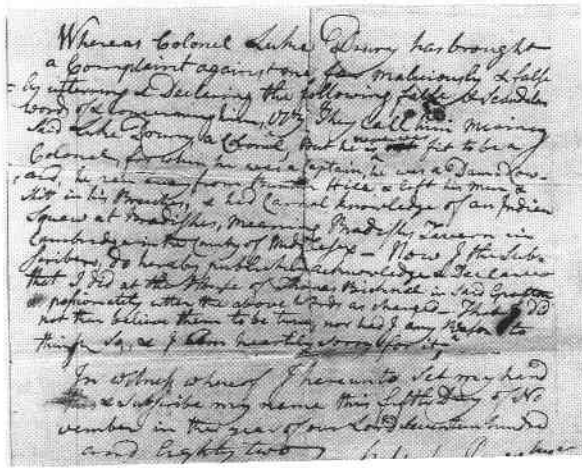 Whereas Colonel Luke Drury has brought
a Complaint against me for maliciously & false
by uttering & Declaring the following false & Scandalous
words of & concerning him, Viz, They call him meaning
Said Luke Drury a Colonel, but he is not fit to be a
Colonel, for when he was a Captain, he was a Damd Cow-
ard, he run away from Bunker Hill & left his Men &
shit in his Breeches, & had Carnal knowledge of an Indian
Squaw at Bradishes, meaning Bradishs Tavern in
Cambridge in the County of Middlesex — Now I the Subs
scriber, do hereby publickly acknowledge & Declare
that I did at the House of Thomas Bicknell in said Grafton
passionately utter the above Words as charged — That I did
not then believe them to be true, nor had I any Reason to
think so, & I am heartily sorry for it,
In witness whereof I hereunto Set my hand
& subscribe my name this fifth Day of No
vember in the year of our Lord Seventeen hundred
and Eighty two